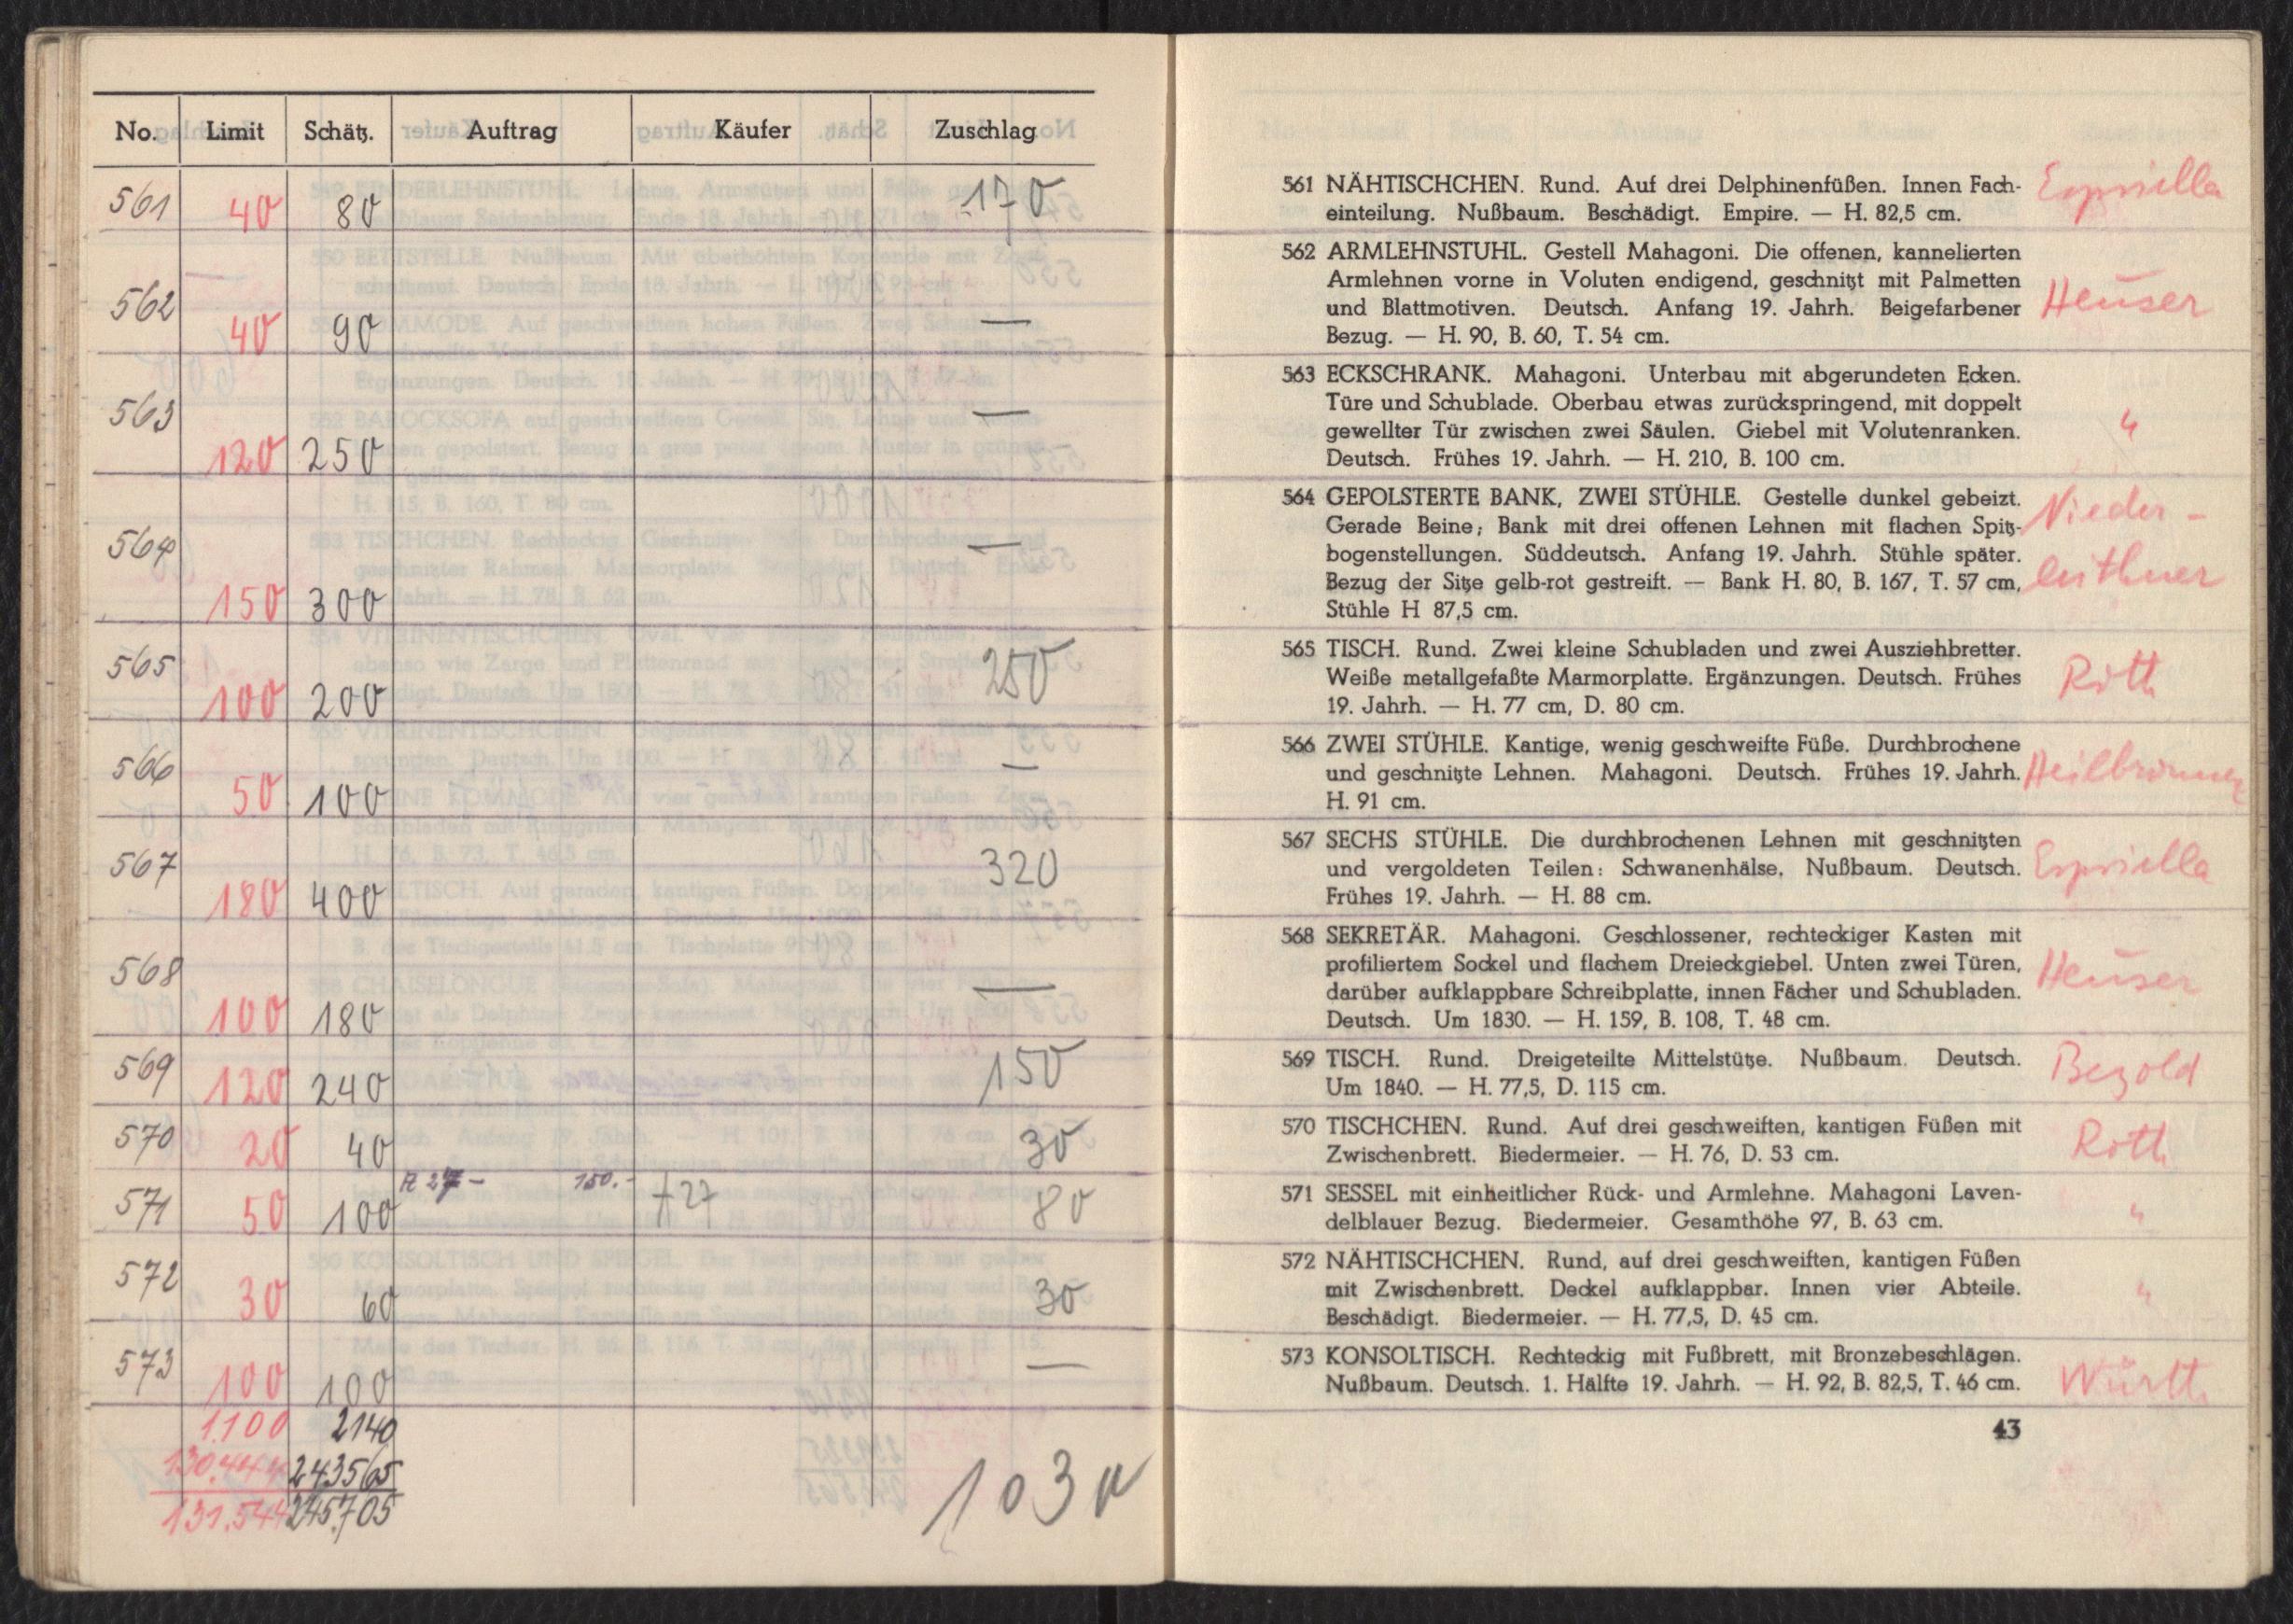 No. Limit Schätz. Auftrag Käufer Zuschlag
561 40 80 170
562 40 90 —
563 120 250 —
564 150 300 —
565 100 200 250
566 50 100 —
567 180 400 320
568 100 180 —
569 120 240 150
570 20 40 30
571 50 100 A 27 – 150.– A 27 80
572 30 60 30
573 100 100 —
1.100 2140
130.444 243565
131.544 245.705
1030
561 NÄHTISCHCHEN. Rund. Auf drei Delphinenfüßen. Innen Fach-
einteilung. Nußbaum. Beschädigt. Empire. — H. 82,5 cm.
Espriella
562 ARMLEHNSTUHL. Gestell Mahagoni. Die offenen, kannelierten
Armlehnen vorne in Voluten endigend, geschnitzt mit Palmetten
und Blattmotiven. Deutsch. Anfang 19. Jahrh. Beigefarbener
Bezug. — H. 90, B. 60, T. 54 cm.
Heuser
563 ECKSCHRANK. Mahagoni. Unterbau mit abgerundeten Ecken.
Türe und Schublade. Oberbau etwas zurückspringend, mit doppelt
gewellter Tür zwischen zwei Säulen. Giebel mit Volutenranken.
Deutsch. Frühes 19. Jahrh. — H. 210, B. 100 cm.
"
564 GEPOLSTERTE BANK, ZWEI STÜHLE. Gestelle dunkel gebeizt.
Gerade Beine; Bank mit drei offenen Lehnen mit flachen Spitz-
bogenstellungen. Süddeutsch. Anfang 19. Jahrh. Stühle später.
Bezug der Sitze gelb-rot gestreift. — Bank H. 80, B. 167, T. 57 cm,
Stühle H 87,5 cm.
Nieder-
leithner
565 TISCH. Rund. Zwei kleine Schubladen und zwei Ausziehbretter.
Weiße metallgefaßte Marmorplatte. Ergänzungen. Deutsch. Frühes
19. Jahrh. — H. 77 cm, D. 80 cm.
Röth
566 ZWEI STÜHLE. Kantige, wenig geschweifte Füße. Durchbrochene
und geschnitzte Lehnen. Mahagoni. Deutsch. Frühes 19. Jahrh.
H. 91 cm.
Heilbronner
567 SECHS STÜHLE. Die durchbrochenen Lehnen mit geschnitzten
und vergoldeten Teilen: Schwanenhälse. Nußbaum. Deutsch.
Frühes 19. Jahrh. — H. 88 cm.
Espriella
568 SEKRETÄR. Mahagoni. Geschlossener, rechteckiger Kasten mit
profiliertem Sockel und flachem Dreieckgiebel. Unten zwei Türen,
darüber aufklappbare Schreibplatte, innen Fächer und Schubladen.
Deutsch. Um 1830. — H. 159, B. 108, T. 48 cm.
Heuser
569 TISCH. Rund. Dreigeteilte Mittelstütze. Nußbaum. Deutsch.
Um 1840. — H. 77,5, D. 115 cm.
Bezold
570 TISCHCHEN. Rund. Auf drei geschweiften, kantigen Füßen mit
Zwischenbrett. Biedermeier. — H. 76, D. 53 cm.
Röth
571 SESSEL mit einheitlicher Rück- und Armlehne. Mahagoni Laven-
delblauer Bezug. Biedermeier. Gesamthöhe 97, B. 63 cm.
"
572 NÄHTISCHCHEN. Rund, auf drei geschweiften, kantigen Füßen
mit Zwischenbrett. Deckel aufklappbar. Innen vier Abteile.
Beschädigt. Biedermeier. — H. 77,5, D. 45 cm.
"
573 KONSOLTISCH. Rechteckig mit Fußbrett, mit Bronzebeschlägen.
Nußbaum. Deutsch. 1. Hälfte 19. Jahrh. — H. 92, B. 82,5, T. 46 cm.
Württ.
43